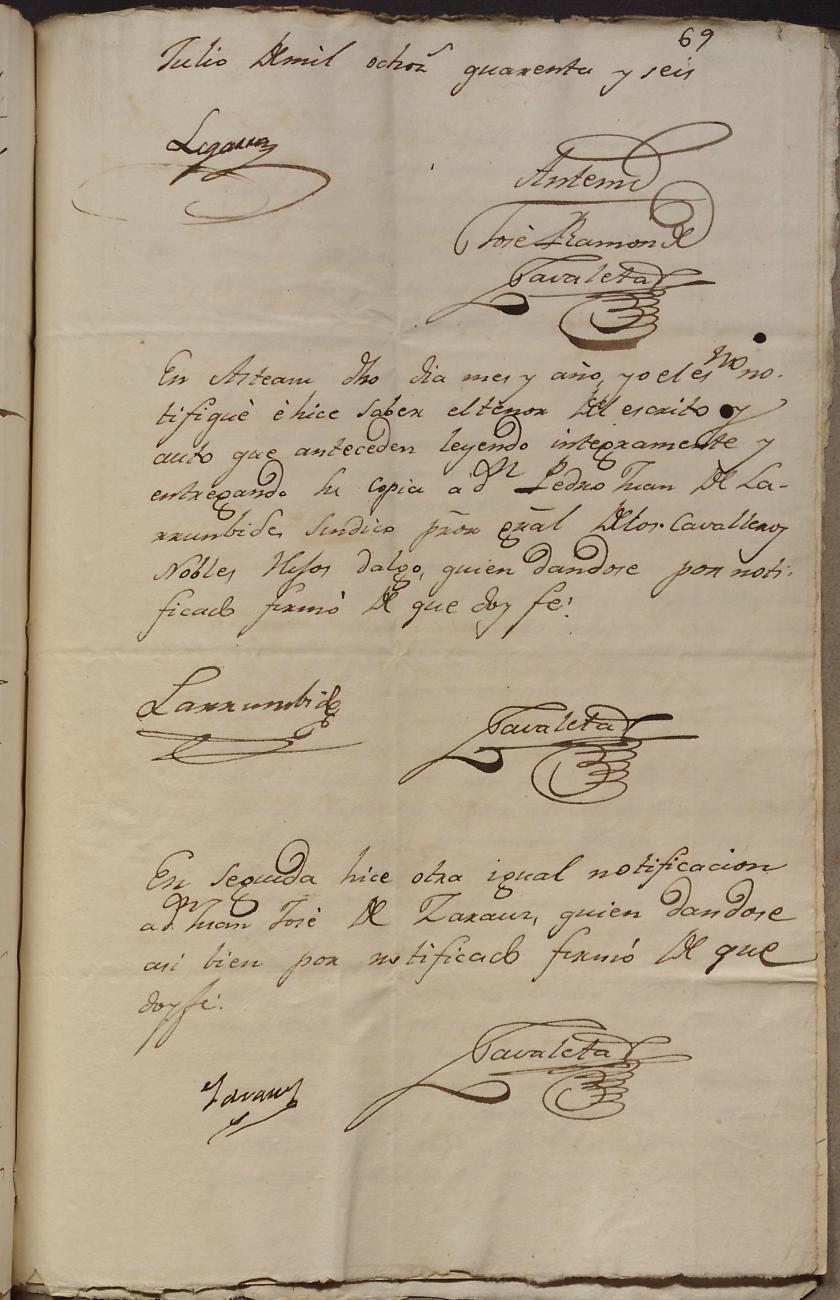 69
Julio de mil ochoz.s quarenta y seis
Legarra
Ante mi
José Ramon de
Zavaleta
En Asteasu dho dia mes y año, yo el es.no no-
tifiquè è hice saber el tenor del escrito y
auto que anteceden leyendo integramente y
entregando su copia a d.n Pedro Juan de La-
rrumbide, Sindico prõr grãl de los Cavalleros
Nobles Hijos dalgo, quien dandose por noti-
ficado firmó de que doy fe.
Larrumbide
Zavaleta
En seguida hice otra igual notificacion
a d.n Juan José de Zarauz, quien dandose
asi bien por notificado firmó de que
doy fe.
Zarauz
Zavaleta